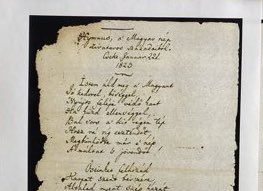 Hymnus, a' Magyar nép
zivataros századaiból.
Cseke, Januar. 22d.
1823
Isten áldd meg a' Magyart
Jó kedvvel, bőséggel,
Nyújts feléje védő kart
Ha küzd ellenséggel,
Bal sors a' kit régen tép
Hozz rá víg esztendőt,
Megbűnhödte már e' nép
A' multat 's jövendőt!
Őseinket felhozád
Kárpát szent bérczére,
Általad nyert szép hazát